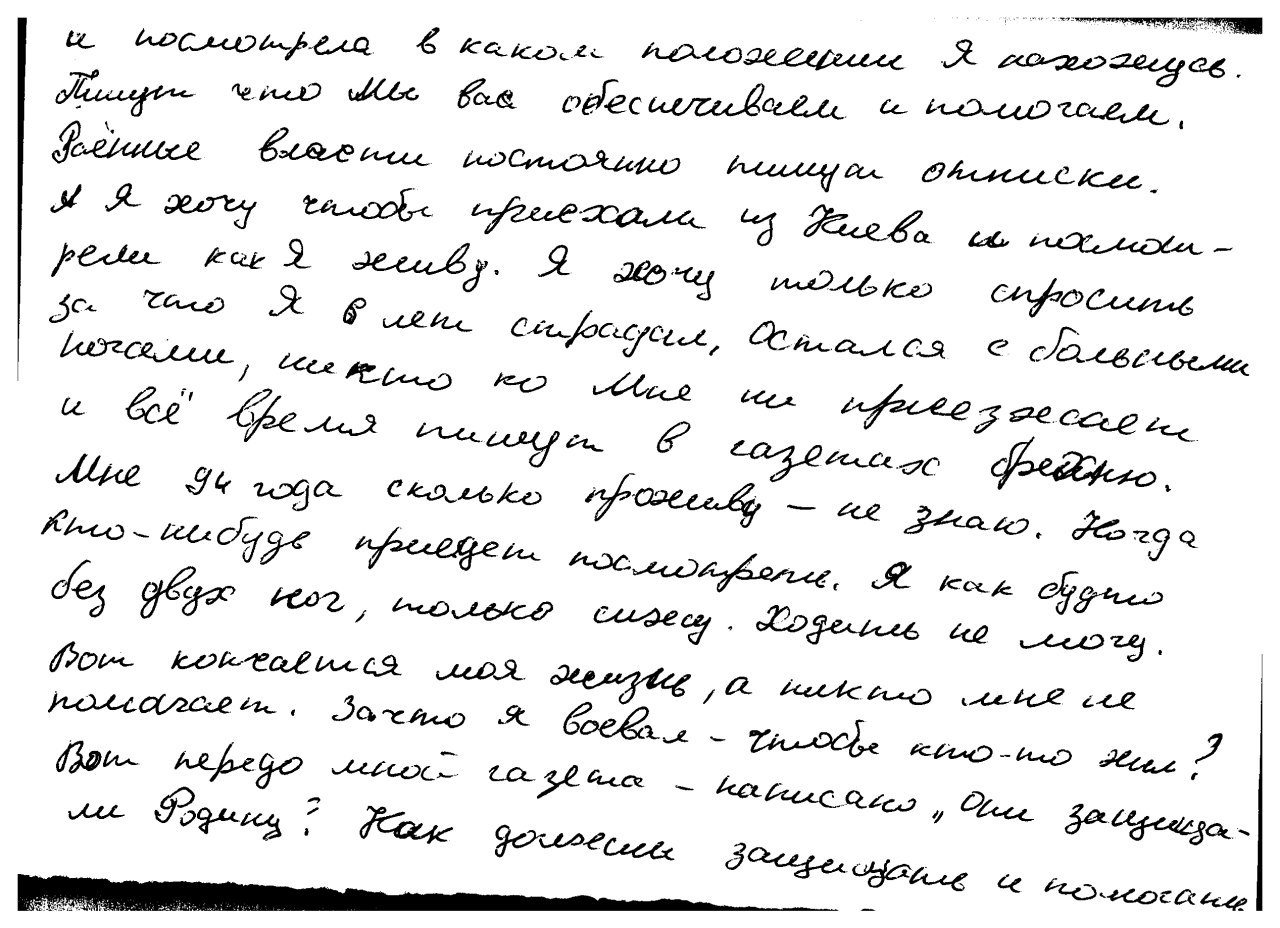 и посмотрела в каком положении Я нахожусь.
Пишут что Мы вас обеспечиваем и помогаем.
Военные власти постоянно пишут отписки.
А Я хочу чтобы приехали из Киева и посмот-
рели как Я живу. Я хочу только спросить
за что Я 6 лет страдал, остался с больными
ногами, никто ко Мне ни приезжает
и всё время пишут в газетах брехню.
Мне 94 года сколько проживу – не знаю. Когда
кто-нибудь приедет посмотреть. Я как будто
без двух ног, только сижу. Ходить не могу.
Вот кончается моя жизнь, а никто мне не
помагает. Зачто я воевал – чтобы кто-то жил?
Вот передо мной газета – написано „Они защища-
ли Родину? Нак должены защищать и помогать